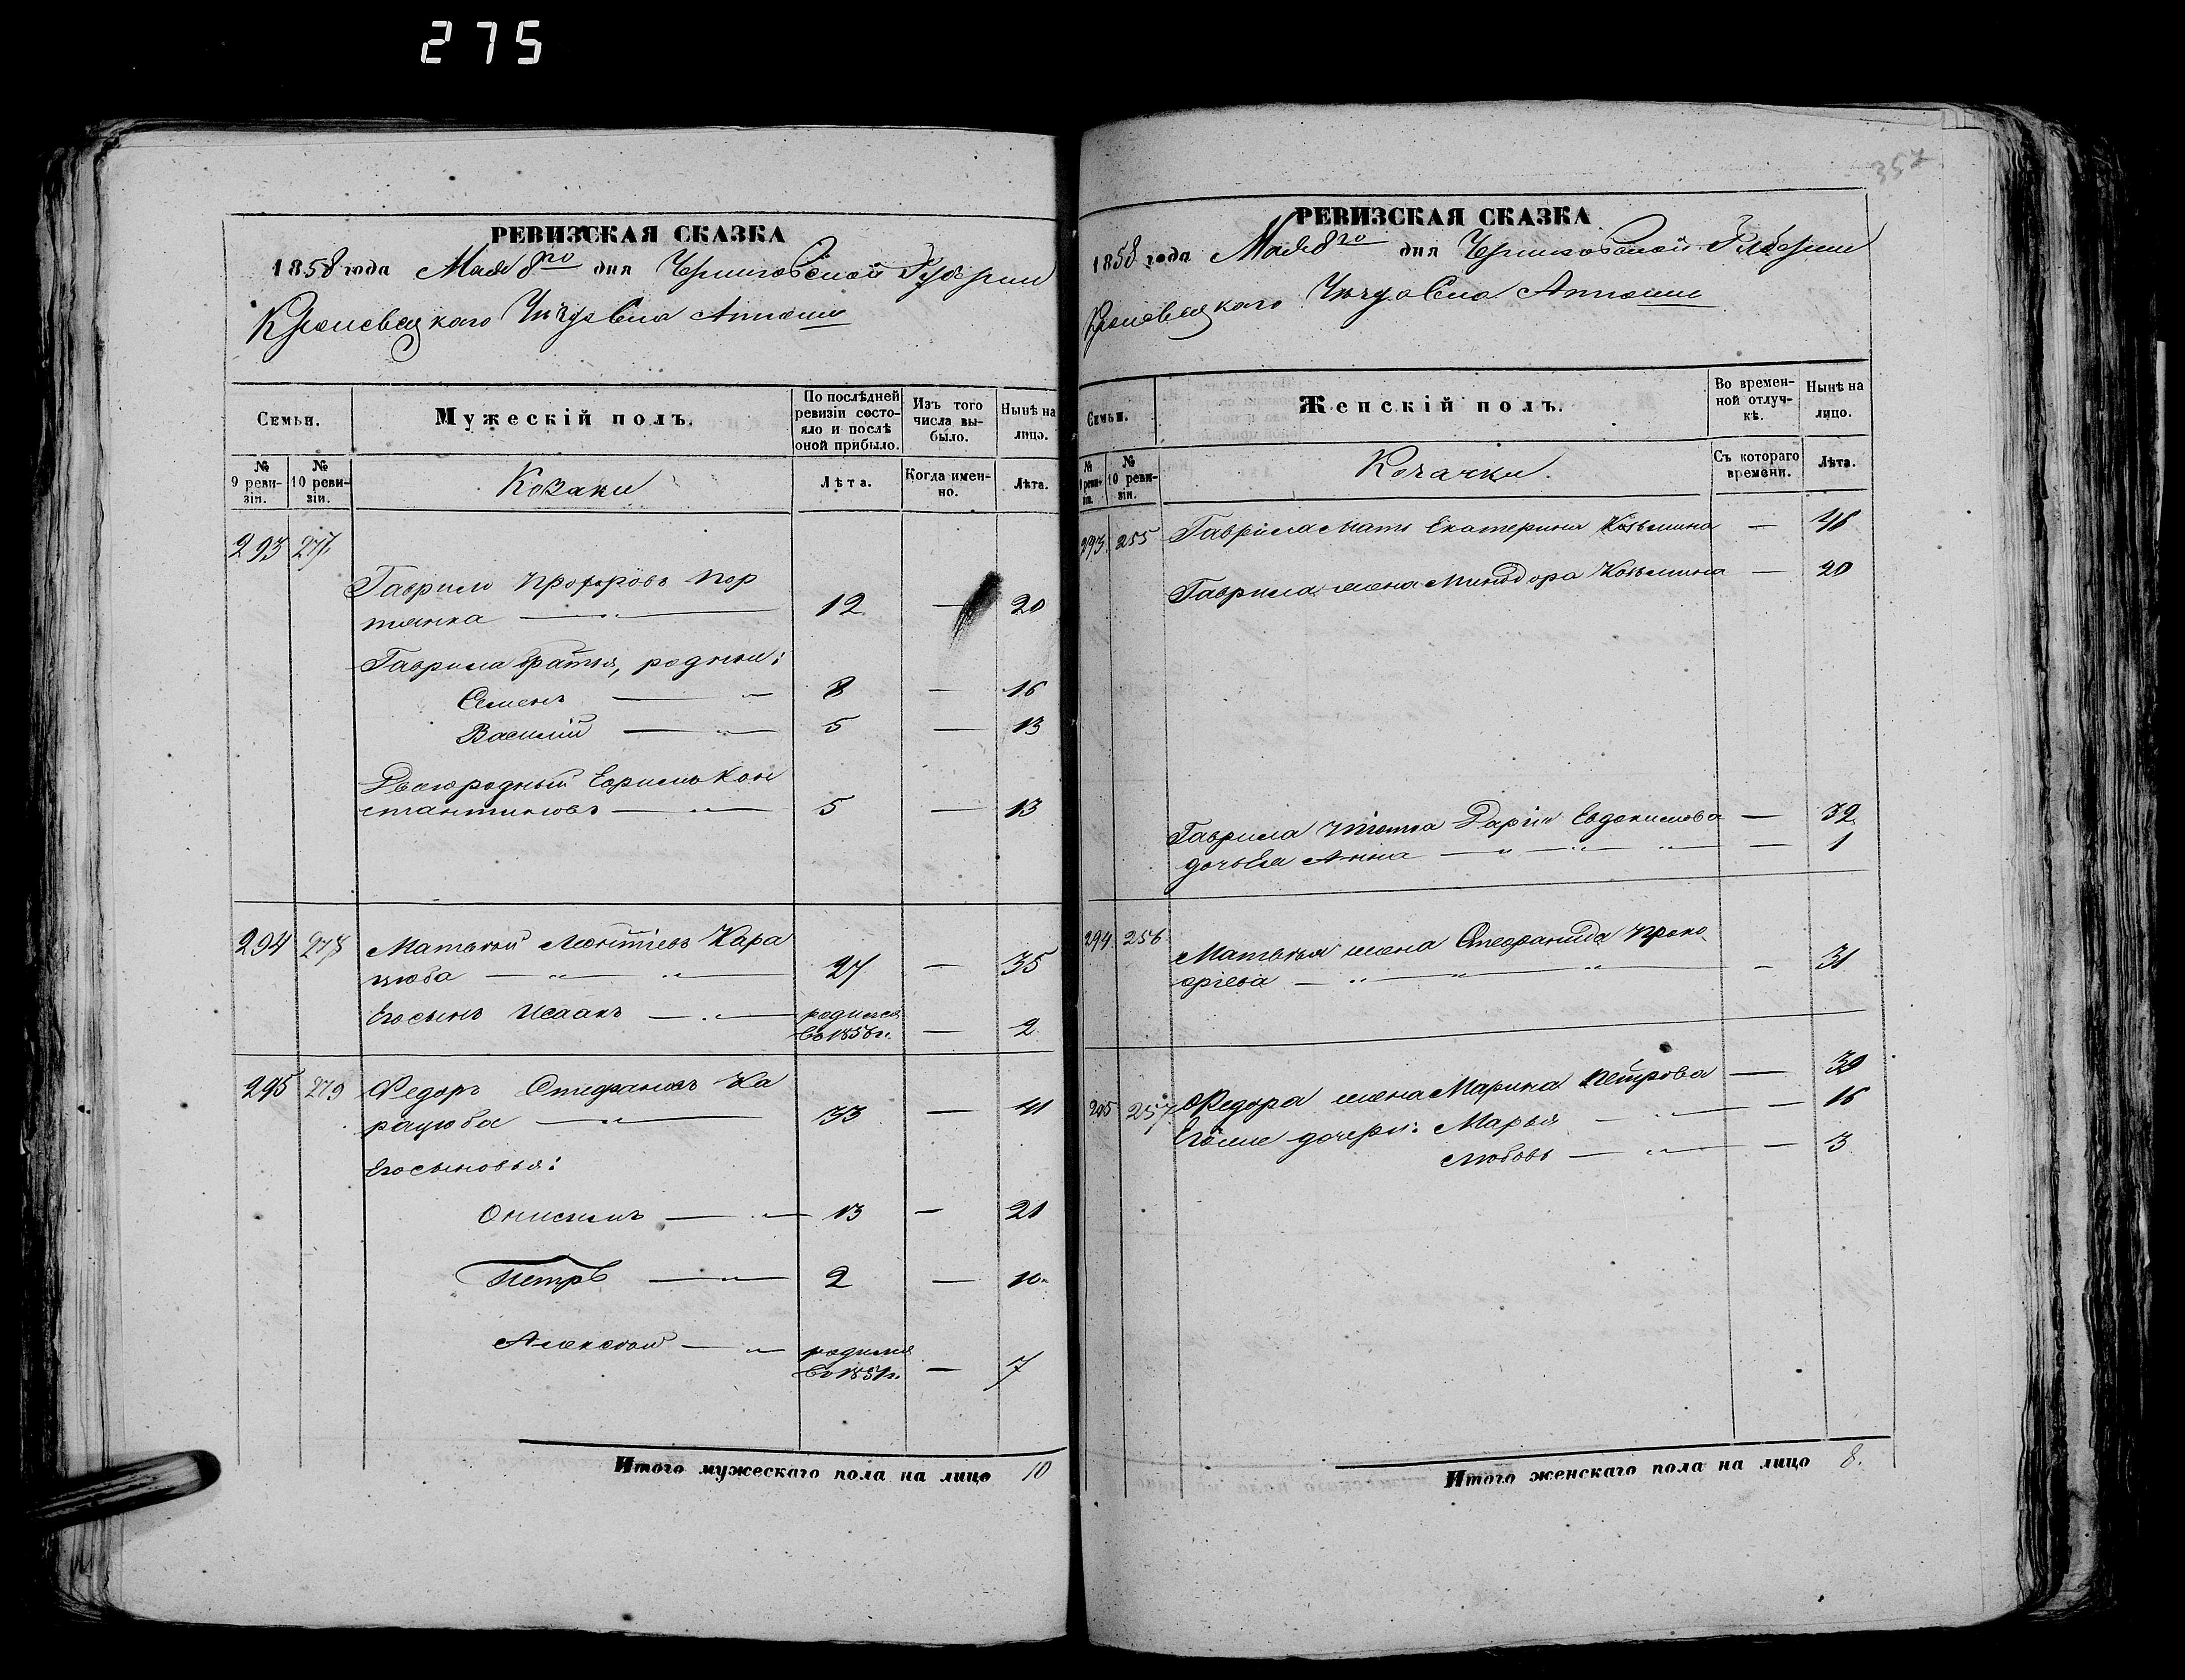 275
357
РЕВИЗСКАЯ СКАЗКА
1858 года Мая 8го дня Черниговской Губернии
Кролевецкаго
Семьи.
Мужескій полъ.
По послѣдней ревизіи состояло и послѣ оной прибыло.
Изъ того числа выбыло.
Нынѣ на лицо.
№ 9 ревизіи.
№ 10 ревизіи.
Козаки
Лѣта.
Когда именно.
Лѣта.
293 277
Гаврило Профировъ Пор
тянка 12 — 20
Гаврила братья, родные:
Семенъ 8 — 16
Василій 5 — 13
Двоюродный Ефримъ Кон
стантиновъ 5 — 13
294 278 Матвѣй Леонтіевъ Кара
цюба 27 — 35
Его сынъ Исаакъ родился
въ 1856 г. — 2
295 279 Федоръ Стефановъ Ка
рацюба 33 — 41
Его сыновья:
Онисимъ 13 — 21
Петръ 2 — 10
Алексѣй родился
въ 1851 г. — 7
Итого мужескаго пола на лицо 10
РЕВИЗСКАЯ СКАЗКА
1858 года Мая 8го дня Черниговской Губернии
Кролевецкаго
Семьи.
Женскій полъ.
Во временной отлучкѣ.
Нынѣ на лицо.
№ 9 ревизіи.
№ 10 ревизіи.
Козачки.
Съ котораго времени.
Лѣта.
293 255 Гаврила мать Екатерина Козьмина — 48
Гаврила жена Минодора Козьмина — 20
Гаврила тютка Дарія Евдокимова — 32
дочь Ея Анна — 1
294 256
Матвѣя жена Стефанида Проко
фіева — 31
295 257 Федора жена Марина Петрова — 39
Егоже дочери: Марья — 16
Любовь — 3
Итого женскаго пола на лицо 8.